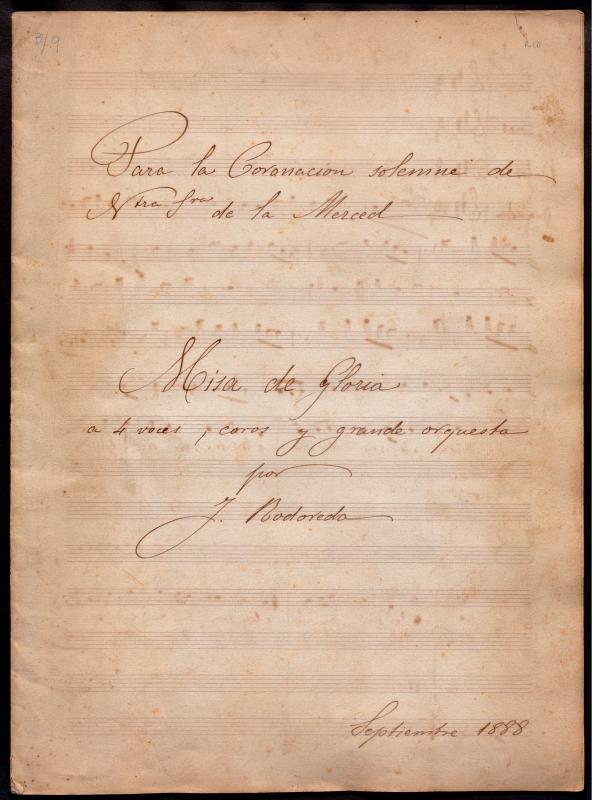 3/9
R10
Para la Coronacion solemne de
Ntra Sra de la Merced
Misa de Gloria
a 4 voces, coros y grande orquesta
por
J. Rodoreda
Septiembre 1888